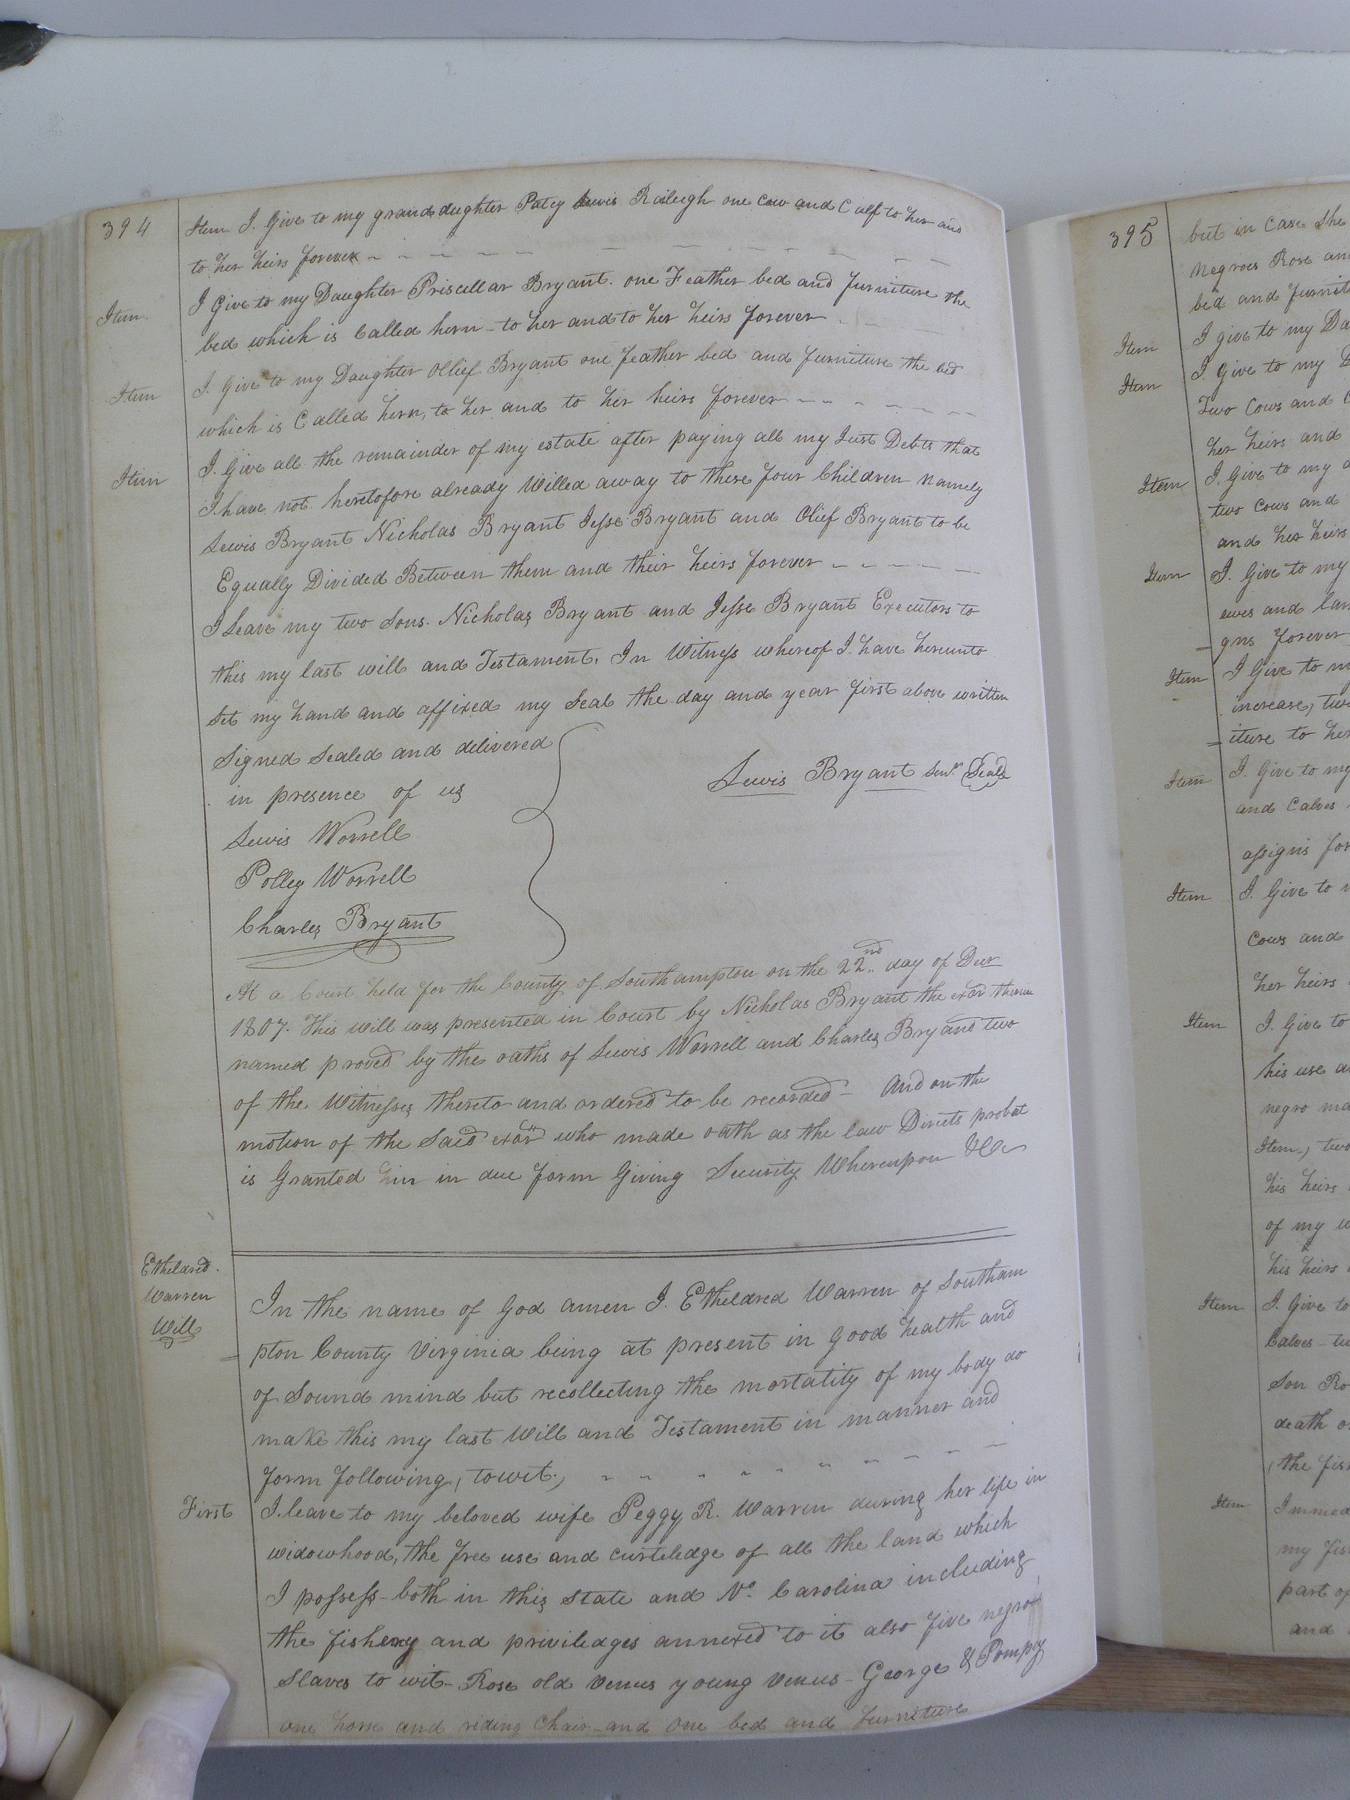 394
Item I Give to my grand dughter Patey Lewis Raileigh one cow and Calf to her and
to her heirs forever
Item I Give to my Daughter Priscillar Bryant one Feather bed and furniture the
bed which is Called hern to her and to her heirs forever
Item I Give to my Daughter Ollief Bryant one feather bed and furniture the bed
which is Called hern, to her and to her heirs forever
Item I Give all the remainder of my estate after paying all my Just Debts that
I have not heretofore already Willed away to these four Children namely
Lewis Bryant Nicholas Bryant Jesse Bryant and Olief Bryant to be
Equally Divided Between them and their heirs forever
I Leave my two Sons Nicholas Bryant and Jesse Bryant Executors to
this my last will and Testament. In Witness whereof I have hereunto
Set my hand and affixed my Seal the day and year first above written
Signed Sealed and delivered
in presence of us
Lewis Bryant Senr. Seal
Lewis Worrell
Polley Worrell
Charles Bryant
At a Court held for the County of Southampton on the 22nd day of Decr
1807. This will was presented in Court by Nicholas Bryant the exor therein
named proved by the oaths of Lewis Worrell and Charles Bryant two
of the Witnesses thereto and ordered to be recorded - And on the
motion of the Said exor who made oath as the law Directs probat
is Granted him in due form Giving Security Whereupon &c
Etheldred
Warren
Will
In the name of God amen I Etheldred Warren of Southam
pton County Virginia being at present in good health and
of Sound mind but recollecting the mortality of my body do
make this my last Will and Testament in manner and
form following, towit,
First I leave to my beloved wife Peggy R. Warren during her life in
widowhood, the free use and curteledge of all the land which
I possess both in this State and No. Carolina including
the fishery and priviledges annexed to it also five negro
Slaves to wit Rose old Venus young Venus George & Pompey
one horse and riding Chair and one bed and furniture
395
but in Case She
negroes Rose
bed and
Item I give to my
Item I Give to my
Two Cows and
her heirs and
Item I Give to my
two Cows and
and her heirs
Item I Give to my
ewes and
gns forever
Item I Give to
increase, two
iture to her
Item I Give to my
and Calves
assigns
Item I Give to
Cows and
her heirs
Item I Give to
his use
negro
Item, two
his heirs
of my
his heirs
Item I Give to
Calves
Son
death
the
Item
my
part of
and